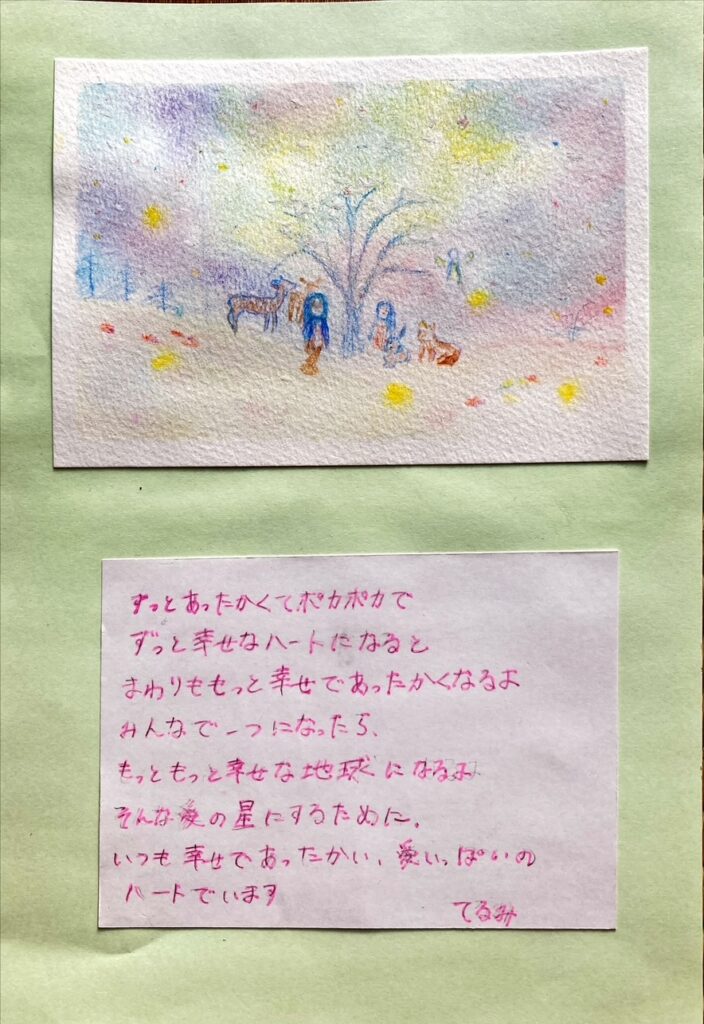 ずっとあったかくてポカポカで
ずっと幸せなハートになると
まわりももっと幸せであったかくなるよ
みんなで一つになったら、
もっともっと幸せな地球になるよ
そんな愛の星にするために、
いつも幸せであったかい、愛いっぱいの
ハートでいます
てるみ